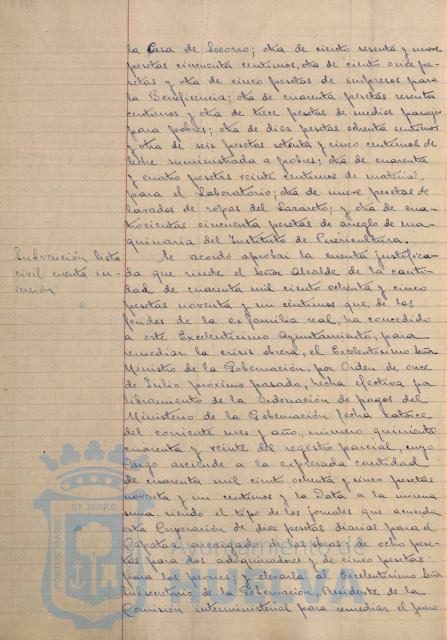 la Casa de Socorro; otra de ciento sesenta y nueve
pesetas cincuenta centimos, otra de ciento once pe-
setas y otra de cinco pesetas de impresos para
la Beneficencia; otra de cuarenta pesetas sesenta
centimos y otra de trece pesetas de medios pasajes
para pobres; otra de diez pesetas ochenta centimos
y otra de seis pesetas setenta y cinco centimos de
leche suministrada a pobres; otra de cuarenta
y cuatro pesetas veinte centimos de material
para el Laboratorio; otra de nueve pesetas de
lavados de ropas del Lazareto; y otra de cua-
trocientas cincuenta pesetas de arreglo de ma-
quinaria del Instituto de Puericultura.
Subvención lista
civil cuenta in-
versión
Se acordó aprobar la cuenta justifica-
da que rinde el Señor Alcalde de la canti-
dad de cuarenta mil ciento ochenta y cinco
pesetas noventa y un centimos que, de los
fondos de la ex familia real, ha concedido
a este Excelentisimo Ayuntamiento, para
remediar la crisis obrera, el Excelentisimo Señor
Ministro de la Gobernación, por Orden de once
de Julio próximo pasado, hecha efectiva por
libramiento de la Ordenación de pagos del
Ministerio de la Gobernación fecha catorce
del corriente mes y año, número quinientos
cuarenta y veinte del registro parcial, cuyo
Cargo asciende a la expresada cantidad
de cuarenta mil ciento ochenta y cinco pesetas
noventa y un centimos y la Data a la misma
suma, siendo el tipo de los jornales que acuerda
esta Corporación de diez pesetas diarias para el
Capataz encargado de las obras; de ocho pese-
tas para dos adoquinadores y de cinco pesetas
para los peones; y elevarla al Excelentisimo Señor
Subsecretario de la Gobernación, Presidente de la
Comisión interministerial para remediar el paro
PORTUS MARIS
ET TERRA
Ayuntamiento de